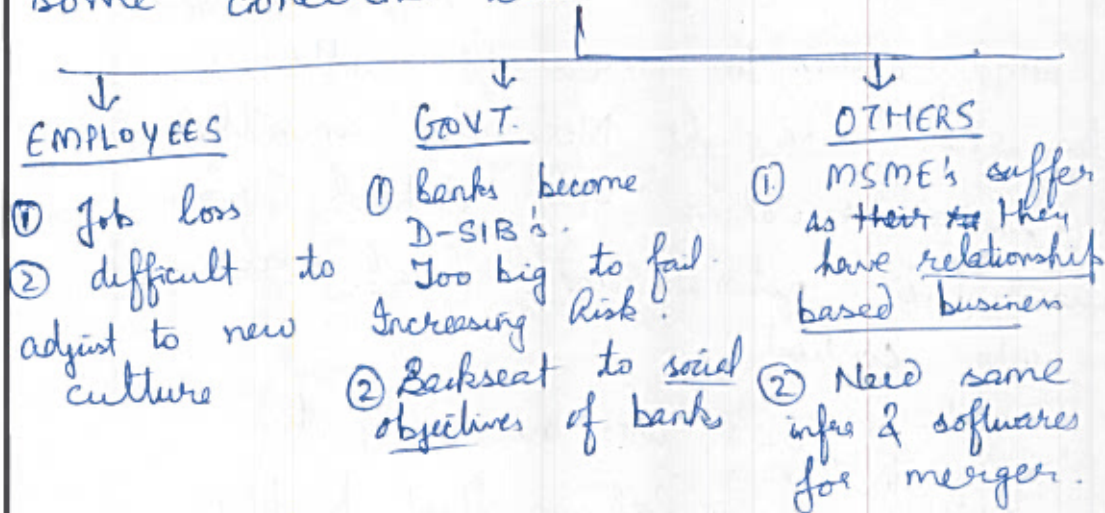 some
EMPLOYEES
① Job loss
② difficult to
adjust to new
culture
GOVT.
① Banks become
D-SIB's.
Too big to fail.
Increasing Risk.
② Backseat to social
objectives of banks
OTHERS
① MSME's suffer
as their they
have relationship
based business
② Need same
infra & softwares
for merger.